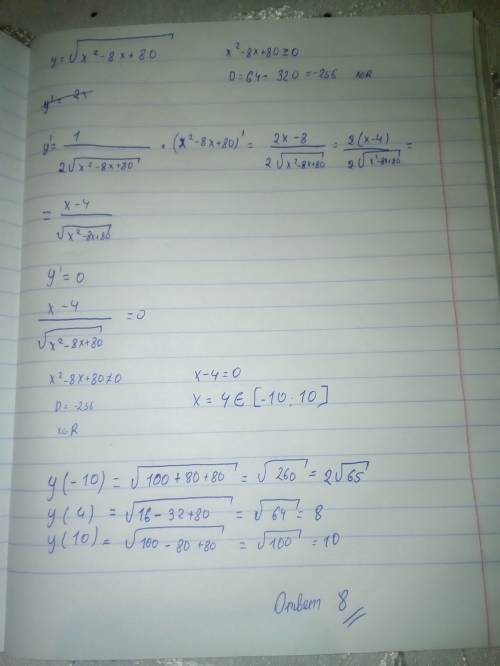 y=√(x²-8x+80) x²-8x+80≥0
D=64-320=-256 x∈R
y'= 1/(2√(x²-8x+80)) • (x²-8x+80)' = (2x-8)/(2√(x²-8x+80)) = 2(x-4)/(2√(x²-8x+80)) =
= (x-4)/√(x²-8x+80)
y'=0
(x-4)/√(x²-8x+80) =0
x²-8x+80≠0 x-4=0
D=-256 x=4∈[-10;10]
x∈R
y(-10)=√(100+80+80)=√260=2√65
y(4)=√(16-32+80)=√64=8
y(10)=√(100-80+80)=√100=10
Ответ 8